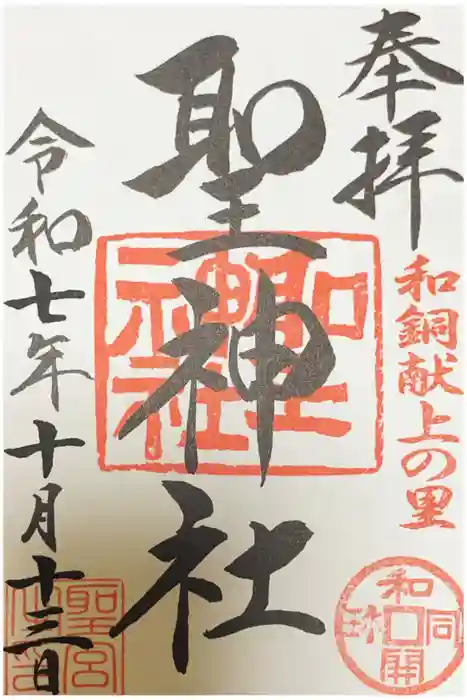 奉拝
和銅献上の里
和同開珎
聖神社
聖神社
令和七年十月十三日